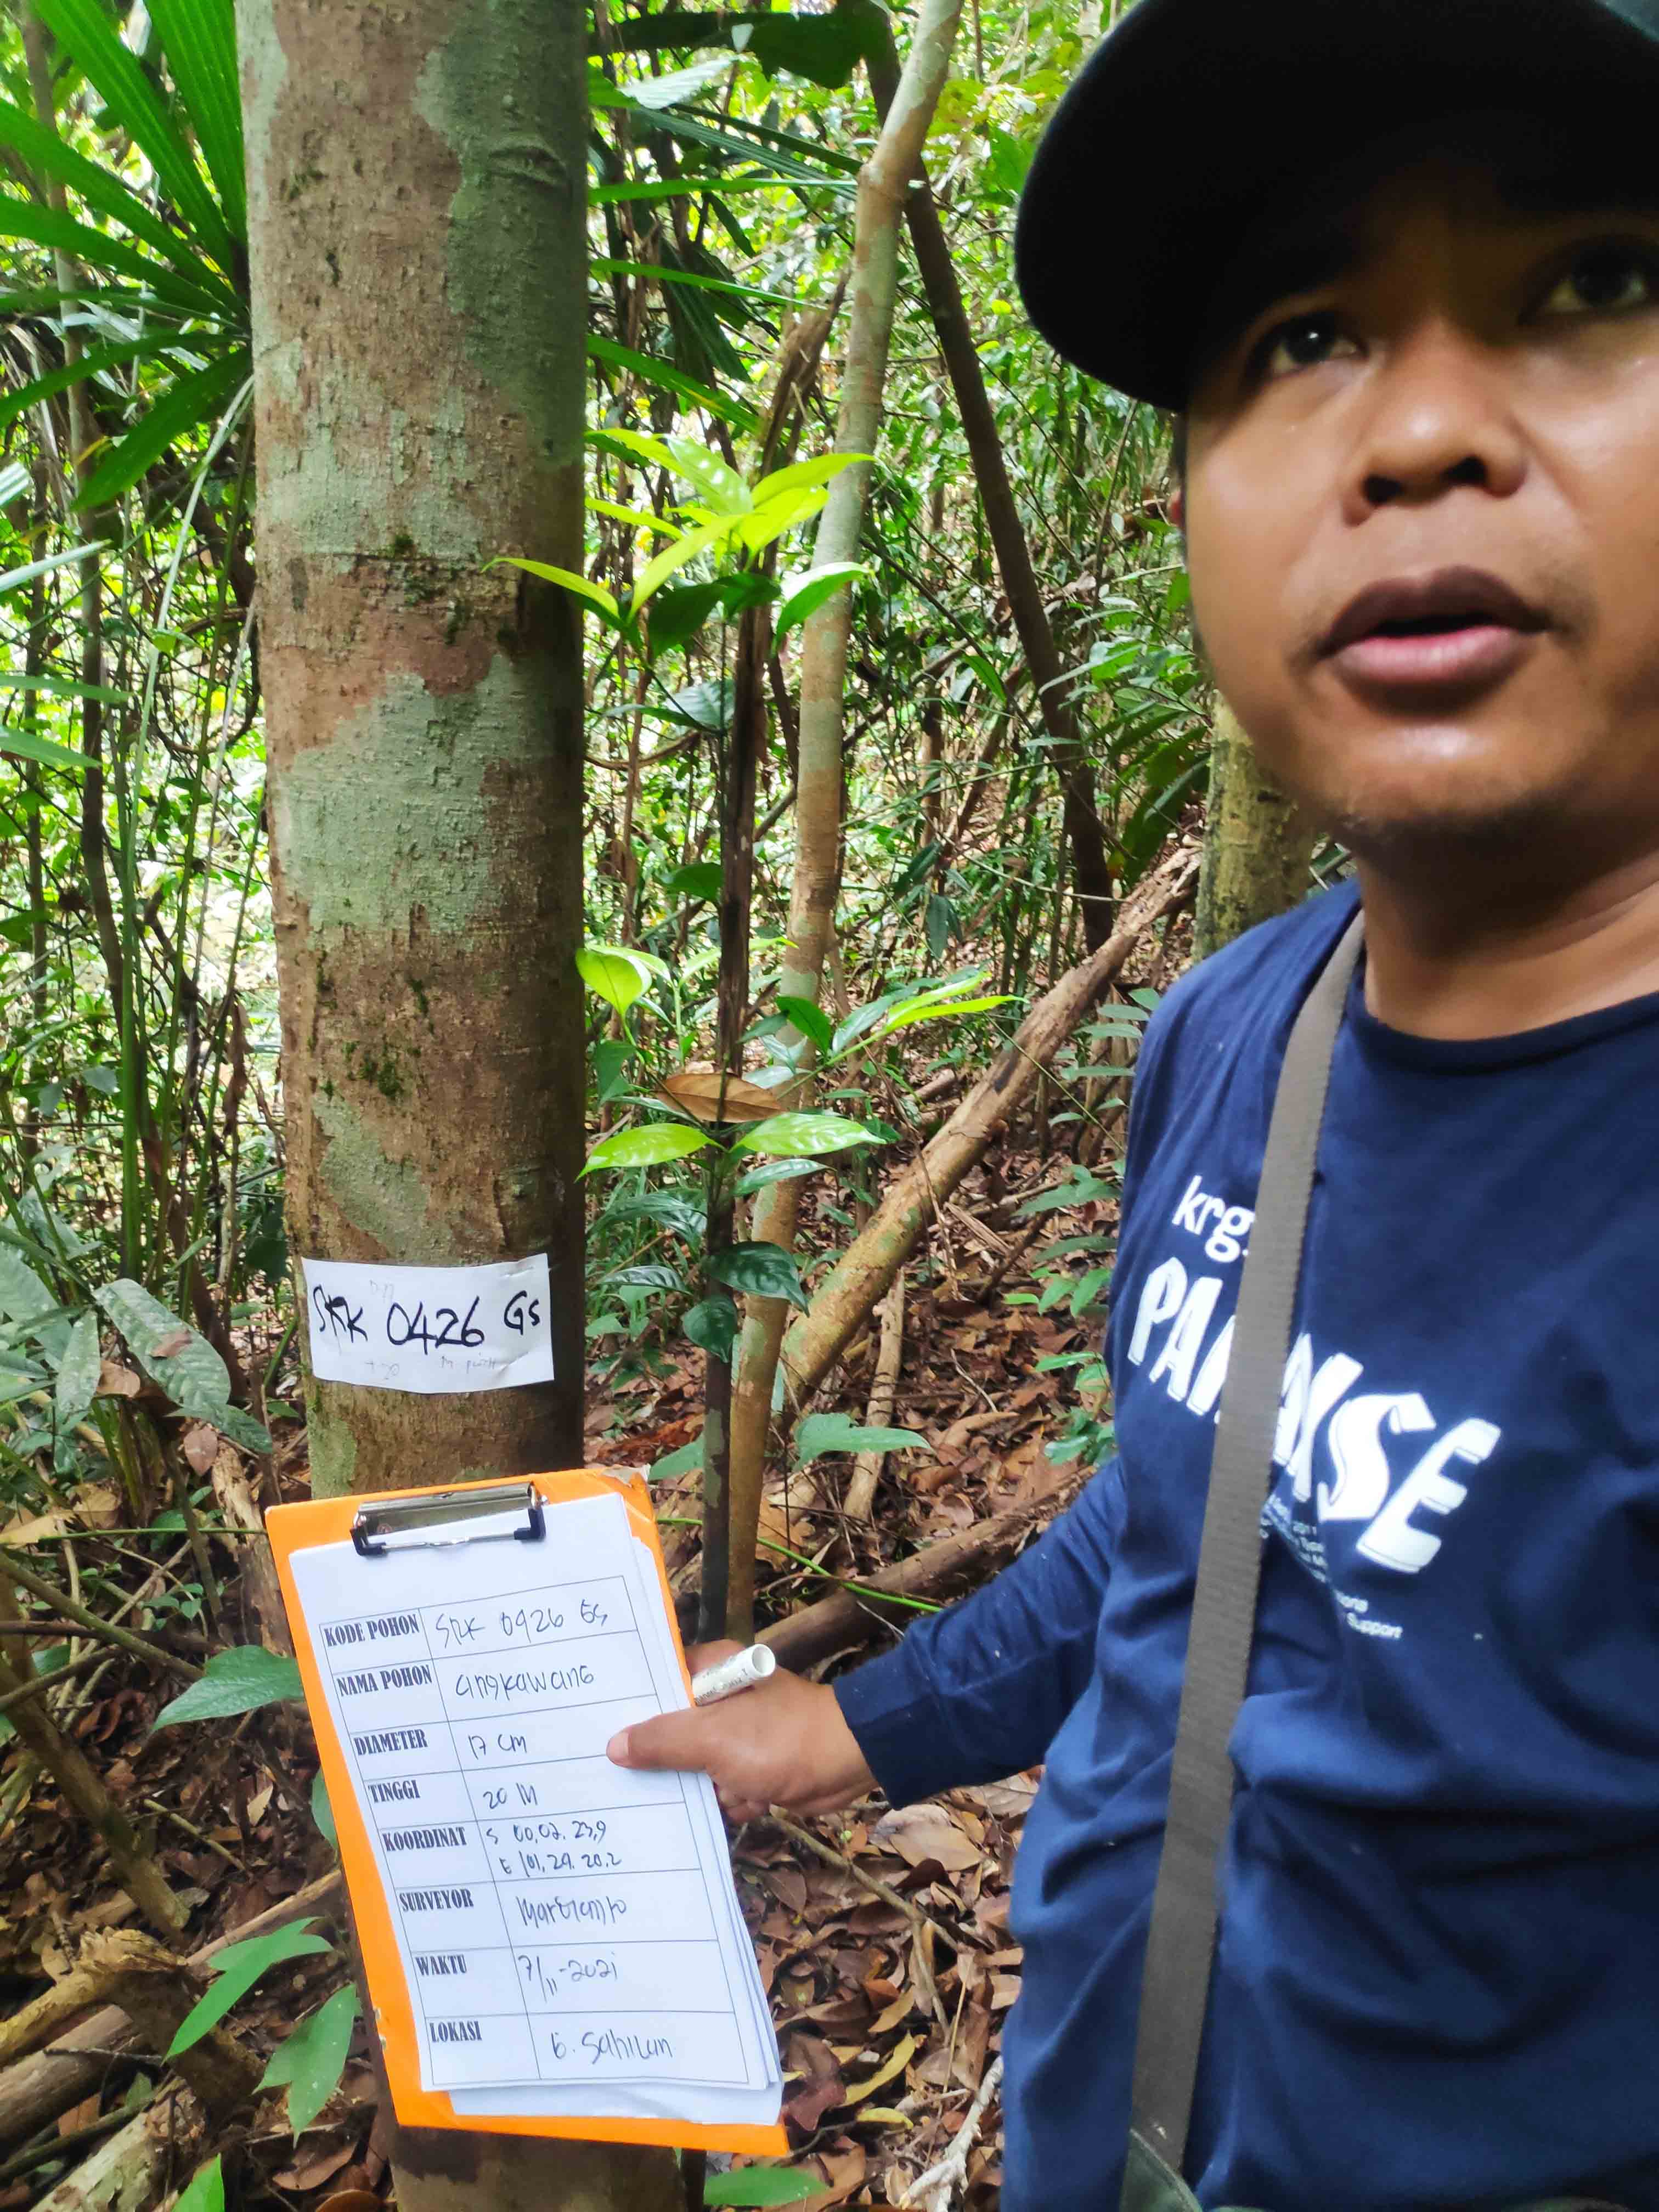 SRK 0426 GS
KODE POHON SRK 0426 GS
NAMA POHON angkawang
DIAMETER 17 cm
TINGGI 20 M
KOORDINAT S 00.02.23,9
E 101.29.20.2
SURVEYOR
WAKTU 7/11-2021
LOKASI G. Sahilan
krg.
Support